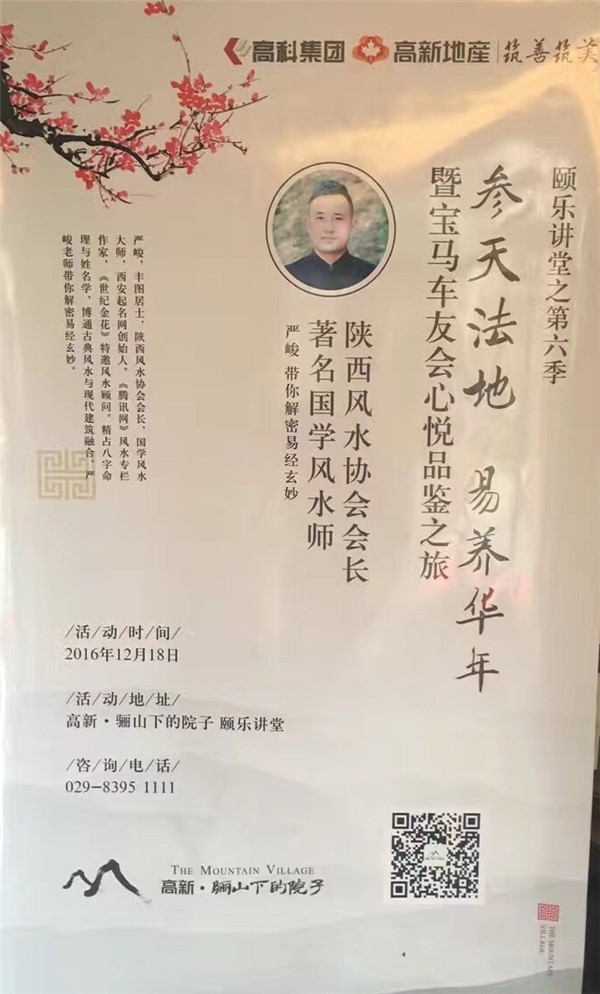 高科集团 高新地産 筑善筑美
颐乐讲堂之第六季
参天法地 易养华年
暨宝马车友会心悦品鉴之旅
陕西风水协会会长
著名国学风水师
严峻 带你解密易经玄妙
严峻，丰图居士，陕西风水协会会长，国学风水
大师，西安起名网创始人。《腾讯网》风水专栏
作家，《世纪金花》特邀风水顾问。精占八字命
理与姓名学，博通古典风水与现代建筑融合。严
峻老师带你解密易经玄妙。
/活/动/时/间/
2016年12月18日
/活/动/地/址/
高新·骊山下的院子 颐乐讲堂
/咨/询/电/话/
029-8395 1111
THE MOUNTAIN VILLAGE
高新·骊山下的院子
THE MOUNTAIN
VILLAGE